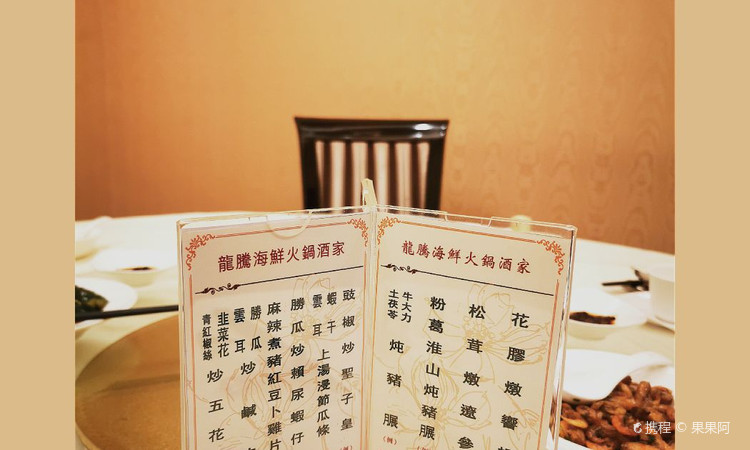 龍騰海鮮火鍋酒家
豉椒炒聖子皇
蝦干
雲耳
上湯浸節瓜條
勝瓜炒賴尿蝦仔
麻辣煮豬紅豆卜雞片
勝瓜
雲耳
炒鹹
韭菜花
青紅椒絲
炒五花
龍騰海鮮火鍋酒家
花膠燉響
松茸燉遼參
粉葛淮山炖豬𦟌
(例)
牛大力
土茯苓
炖豬𦟌
(例)
携程 © 果果阿